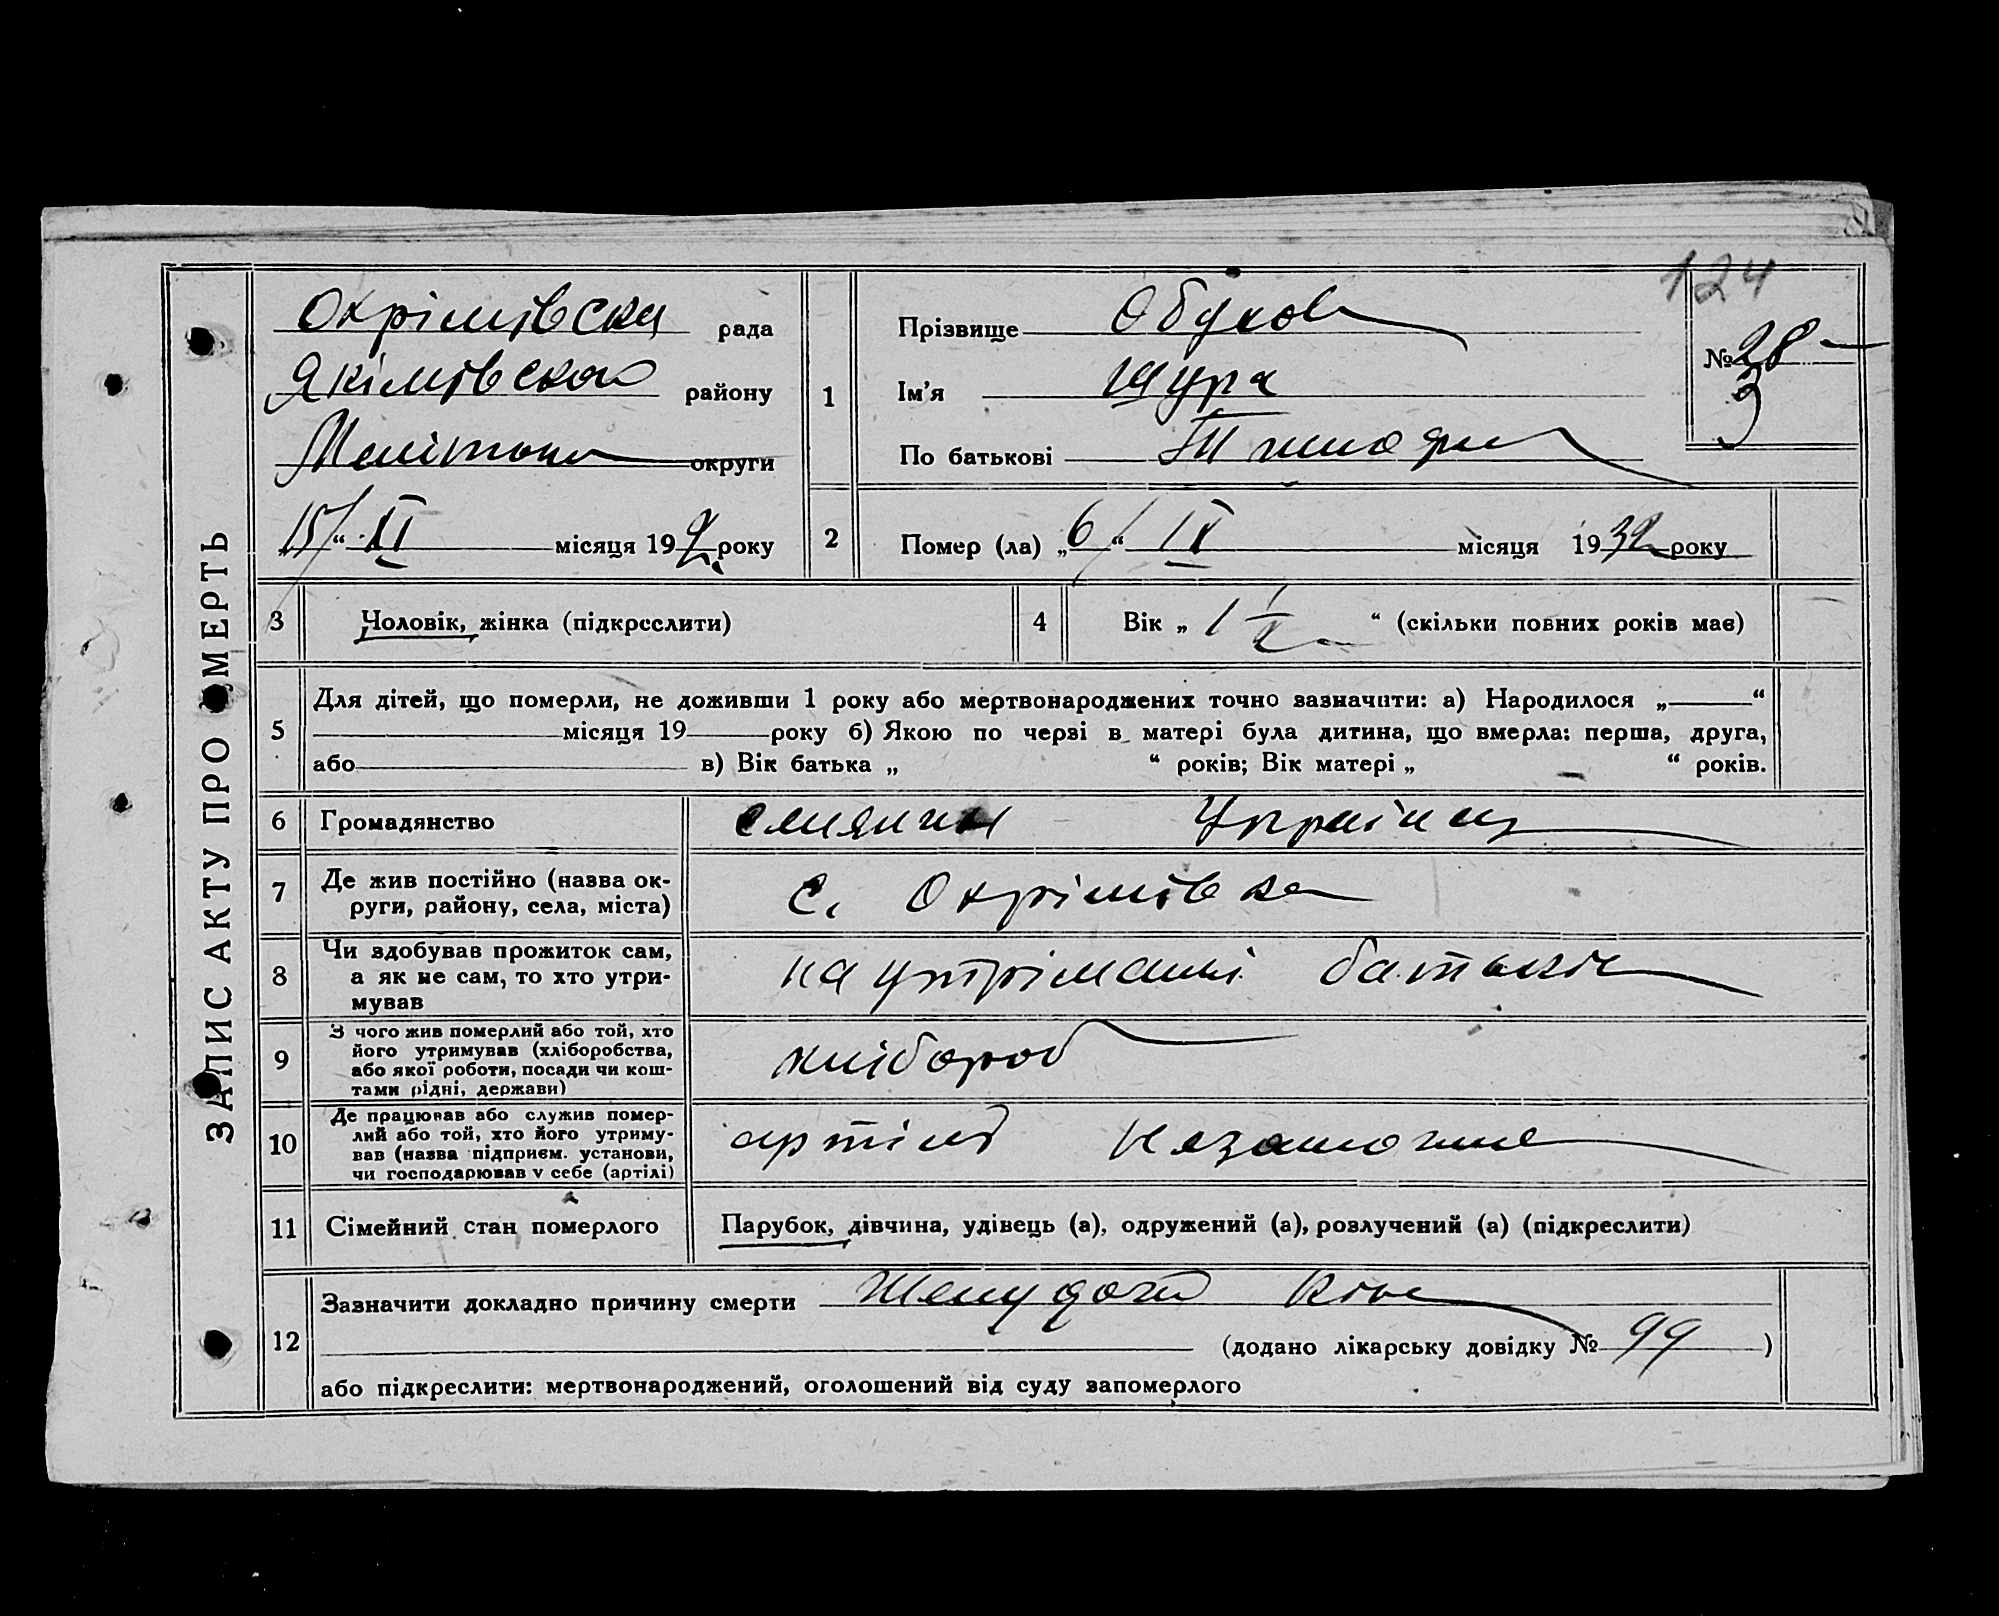 124
ЗАПИС АКТУ ПРО СМЕРТЬ
Охрімівска рада
Якімівсково району
Мелітопол округи
15/ “ XI місяця 192 року
1
Прізвище Обухов
Ім'я Шура
По батькові
№ 28
3
2
Помер (ла) „6“ IX місяця 1932 року
3 Чоловік, жінка (підкреслити)
4 Вік „ 1 1/2 “ (скільки повних років має)
5 Для дітей, що померли, не доживши 1 року або мертвонароджених точно зазначити: а) Народилося „ “
місяця 19 року б) Якою по черзі в матері була дитина, що вмерла: перша, друга,
або в) Вік батька „ “ років; Вік матері „ “ років.
6 Громадянство Українец
7 Де жив постійно (назва ок-
руги, району, села, міста)
с. Охрімівка
8 Чи здобував прожиток сам,
а як не сам, то хто утри-
мував
на утріманні батьків
9 З чого жив померлий або той, хто
його утримував (хліборобства,
або якої роботи, посади чи кош-
тами рідні, держави)
хлібороб
10 Де працював або служив помер-
лий або той, хто його утриму-
вав (назва підприєм. установи,
чи господарював у себе (артілі)
артіль Незаможне
11 Сімейний стан померлого
Парубок, дівчина, удівець (а), одружений (а), розлучений (а) (підкреслити)
12 Зазначити докладно причину смерти
(додано лікарську довідку № 99 )
або підкреслити: мертвонароджений, оголошений від суду запомерлого